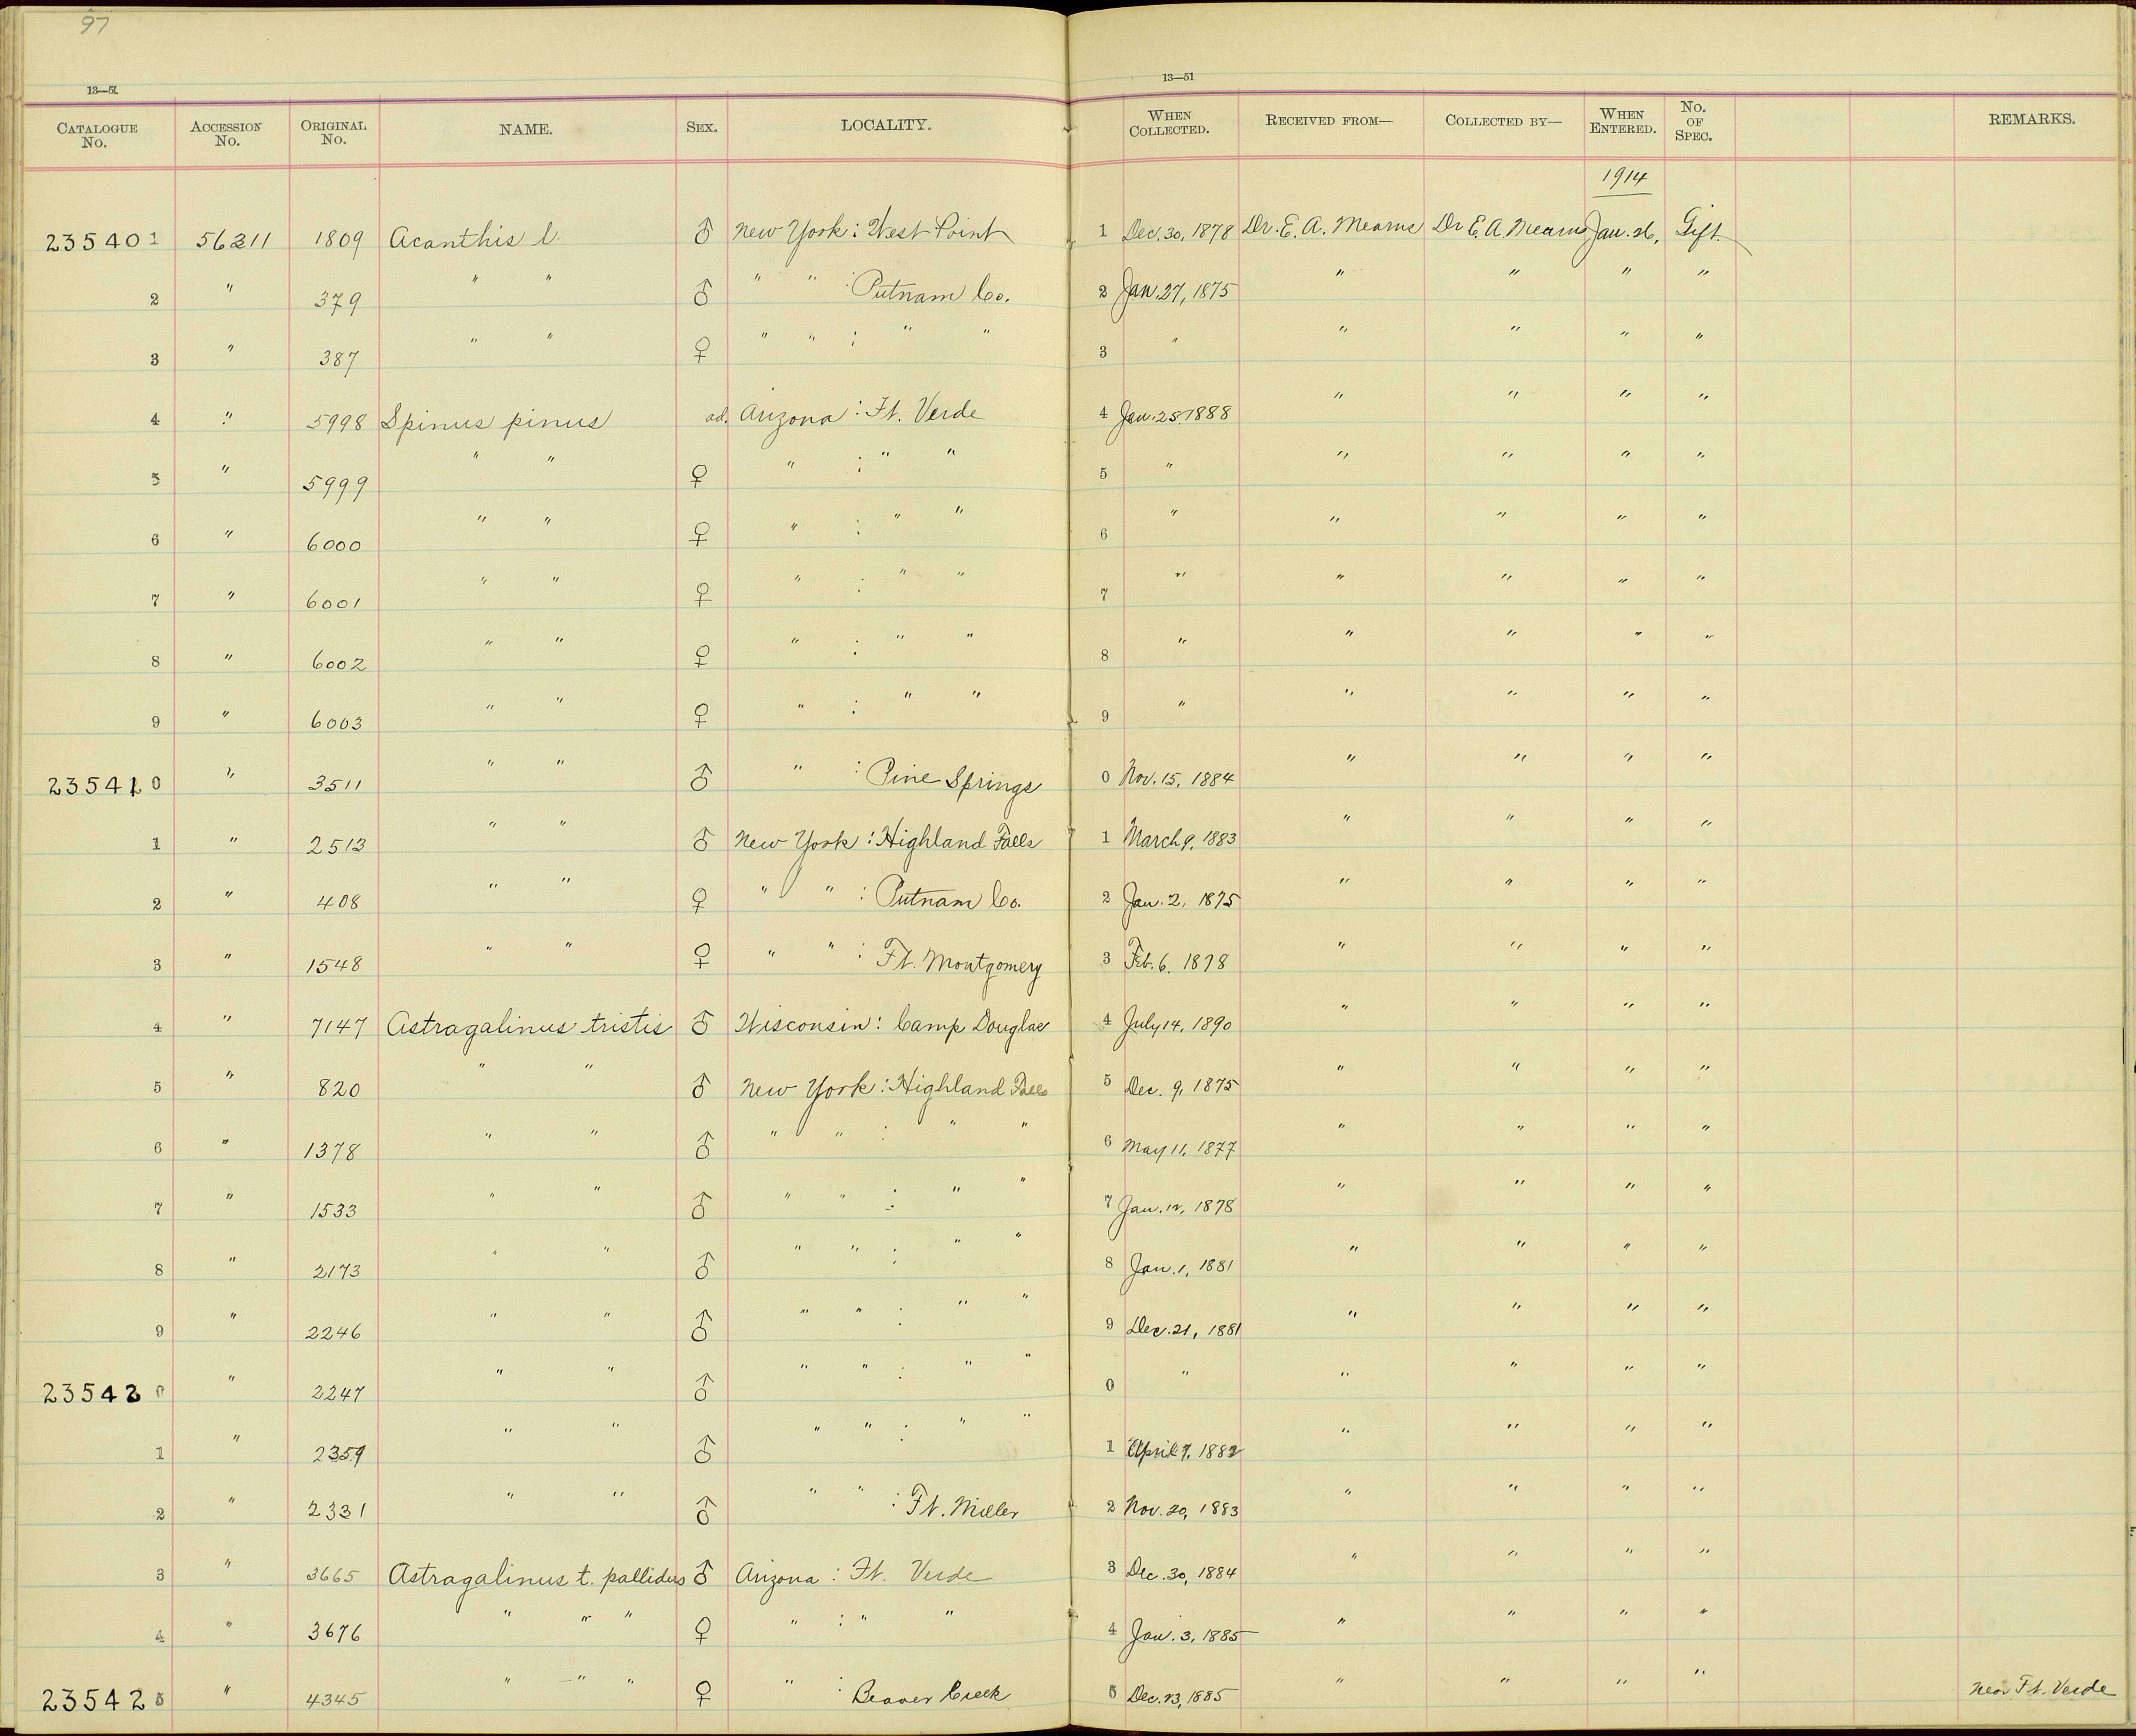 97
13—51 13—51
CATALOGUE No. ACCESSION No. ORIGINAL No. NAME. SEX. LOCALITY. WHEN COLLECTED. RECEIVED FROM— COLLECTED BY— WHEN ENTERED. No. OF SPEC. REMARKS.
1914
235401 56211 1809 Acanthis l. ♂ New York: West Point 1 Dec. 30, 1878 Dr. E. A. Mearns Dr E. A. Mearns Jan. 26, Gift
2 " 379 " " ♂ " " : Putnam Co. 2 Jan. 27, 1875 " " " "
3 " 387 " " ♀ " " : " " 3 " " " " "
4 " 5998 Spinus pinus ad. Arizona: Ft. Verde 4 Jan. 25, 1888 " " " "
5 " 5999 " " ♀ " : " " 5 " " " " "
6 " 6000 " " ♀ " : " " 6 " " " " "
7 " 6001 " " ♀ " : " " 7 " " " " "
8 " 6002 " " ♀ " : " " 8 " " " " "
9 " 6003 " " ♀ " : " " 9 " " " " "
235410 " 3511 " " ♂ " : Pine Springs 0 Nov. 15, 1884 " " " "
1 " 2513 " " ♂ New York: Highland Falls 1 March 9, 1883 " " " "
2 " 408 " " ♀ " " : Putnam Co. 2 Jan. 2, 1875 " " " "
3 " 1548 " " ♀ " " : Ft. Montgomery 3 Feb. 6. 1878 " " " "
4 " 7147 Astragalinus tristis ♂ Wisconsin: Camp Douglas 4 July 14, 1890 " " " "
5 " 820 " " ♂ New York: Highland Falls 5 Dec. 9, 1875 " " " "
6 " 1378 " " ♂ " " : " " 6 May 11, 1877 " " " "
7 " 1533 " " ♂ " " : " " 7 Jan. 12, 1878 " " " "
8 " 2173 " " ♂ " " : " " 8 Jan. 1, 1881 " " " "
9 " 2246 " " ♂ " " : " " 9 Dec. 21, 1881 " " " "
235420 " 2247 " " ♂ " " : " " 0 " " " " "
1 " 2359 " " ♂ " " : " " 1 April 7, 1882 " " " "
2 " 2331 " " ♂ " " : Ft. Miller 2 Nov. 20, 1883 " " " "
3 " 3665 Astragalinus t. pallidus ♂ Arizona: Ft. Verde 3 Dec. 30, 1884 " " " "
4 " 3676 " " " ♀ " : " " 4 Jan. 3, 1885 " " " "
235425 " 4345 " " " ♀ " : Beaver Creek 5 Dec. 23, 1885 " " " " Near Ft. Verde